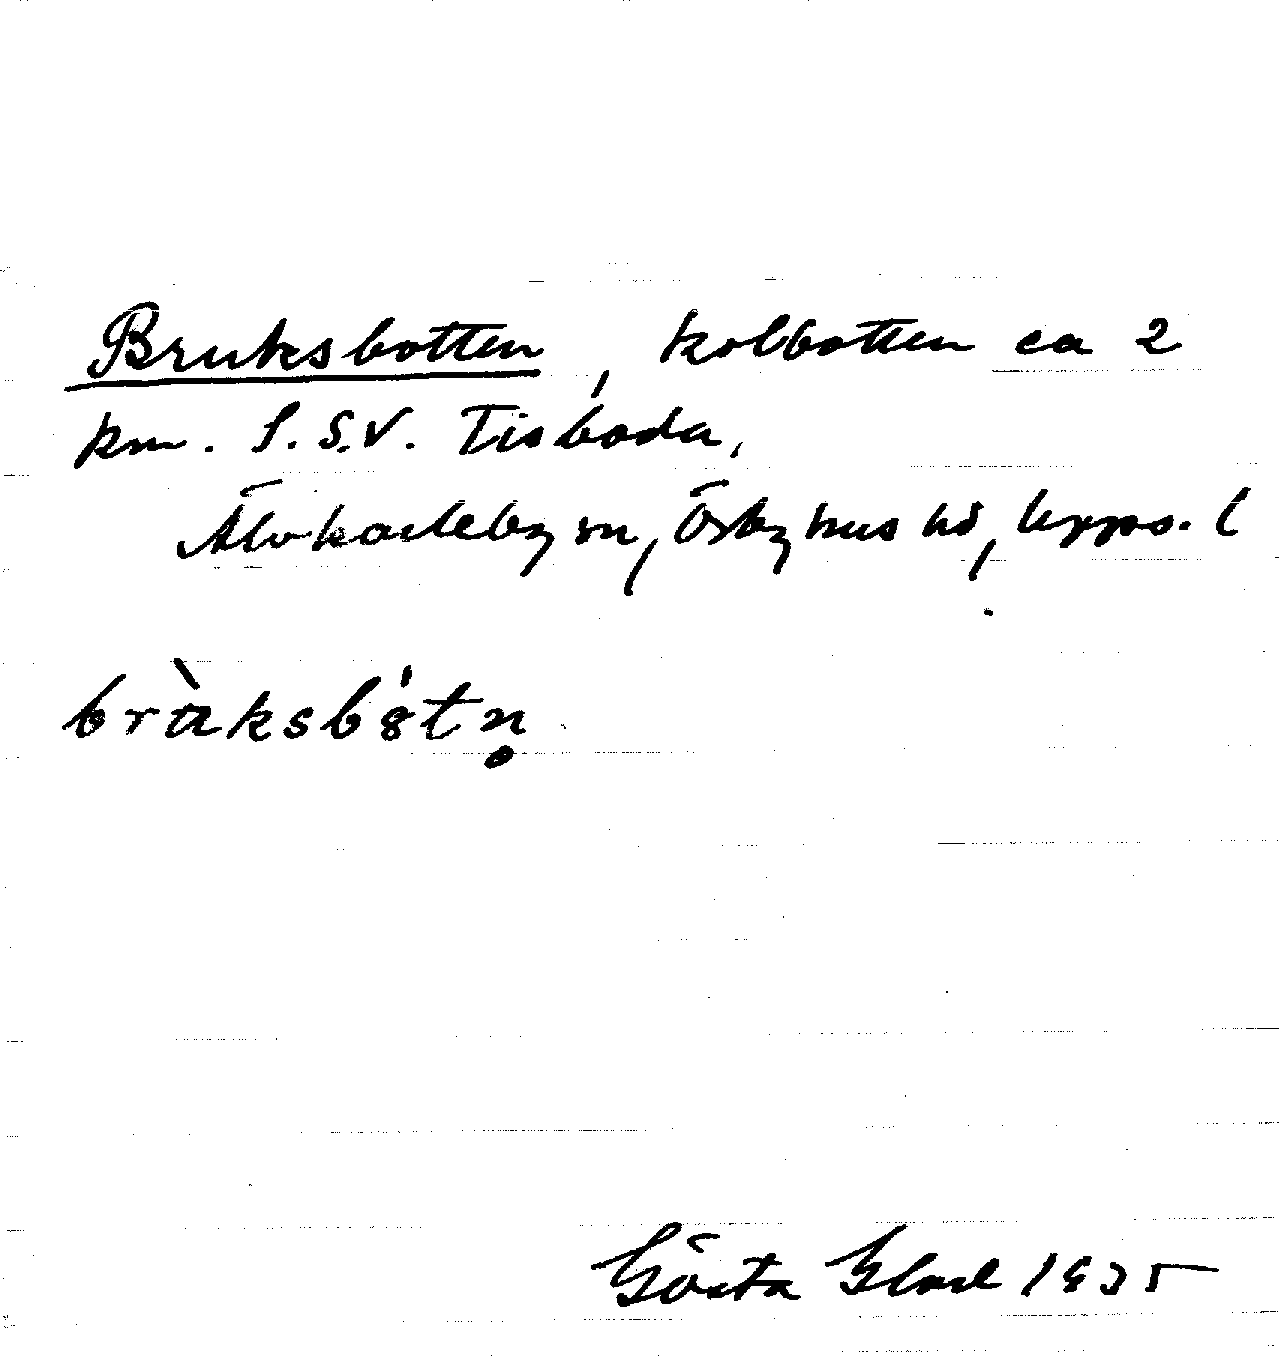 Bruksbotten, kolbotten ca 2
km. S.S.V. Tisboda,
Älvkarleby sn, Örbyhus hd, Upps. l
bràksb8́tn̥
Gösta 1935